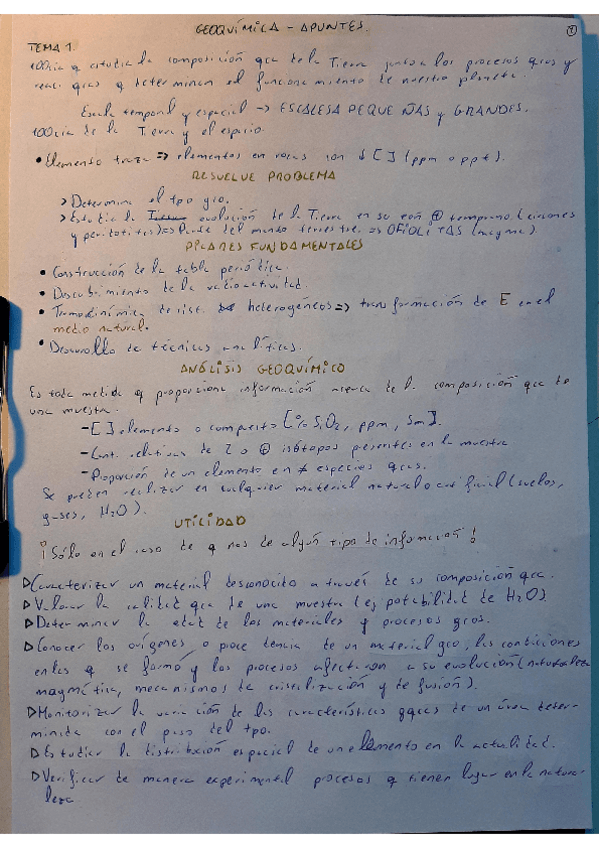 GEOQUÍMICA - APUNTES.
1
TEMA 1.
estudia la composición qca de la Tierra junto a los procesos qcos y
reac. qcas q determinan el funcionamiento de nuestro planeta.
Escala temporal y espacial -> ESCALESA PEQUEÑAS y GRANDES.
de la Tierra y el espacio.
• Elemento traza => elementos en rocas con ↓ [ ] (ppm o ppt).
RESUELVE PROBLEMA
> Determina el tpo gco.
> Estudia la evolución de la Tierra en su eón ⊕ temprano (circones
y peridotitas) => Parte del manto terrestre. => OFIOLITAS (magma)
PILARES FUNDAMENTALES
• Construcción de la tabla periódica.
• Descubrimiento de la radioactividad.
• Termodinámica de sist. heterogéneos => transformación de E en el
medio natural.
• Desarrollo de técnicas analíticas.
ANÁLISIS GEOQUÍMICO
Es toda medida q proporciona información acerca de la composición qca de
una muestra.
- [ ] elemento o compuesto [% SiO2, ppm, Sm].
- Cant. relativas de 2 o ⊕ isótopos presentes en la muestra
- Proporción de un elemento en ≠ especies qcas.
Se pueden realizar en cualquier material natural o artificial (suelos,
gases, H2O).
UTILIDAD
¡Sólo en el caso de q nos de algún tipo de información!
▷ Caracterizar un material desconocido a través de su composición qca.
▷ Valorar la calidad qca de una muestra (ej potabilidad de H2O)
▷ Determinar la edad de los materiales y procesos gcos.
▷ Conocer los orígenes o procedencia de un material gco, las condiciones
en las q se formó y los procesos afectaron a su evolución (naturaleza
magmática, mecanismos de cristalización y de fusión).
▷ Monitorizar la variación de las características gqcas de un área deter-
minada con el paso del tpo.
▷ Estudiar la distribución espacial de un elemento en la actualidad.
▷ Verificar de manera experimental procesos q tienen lugar en la natura-
leza